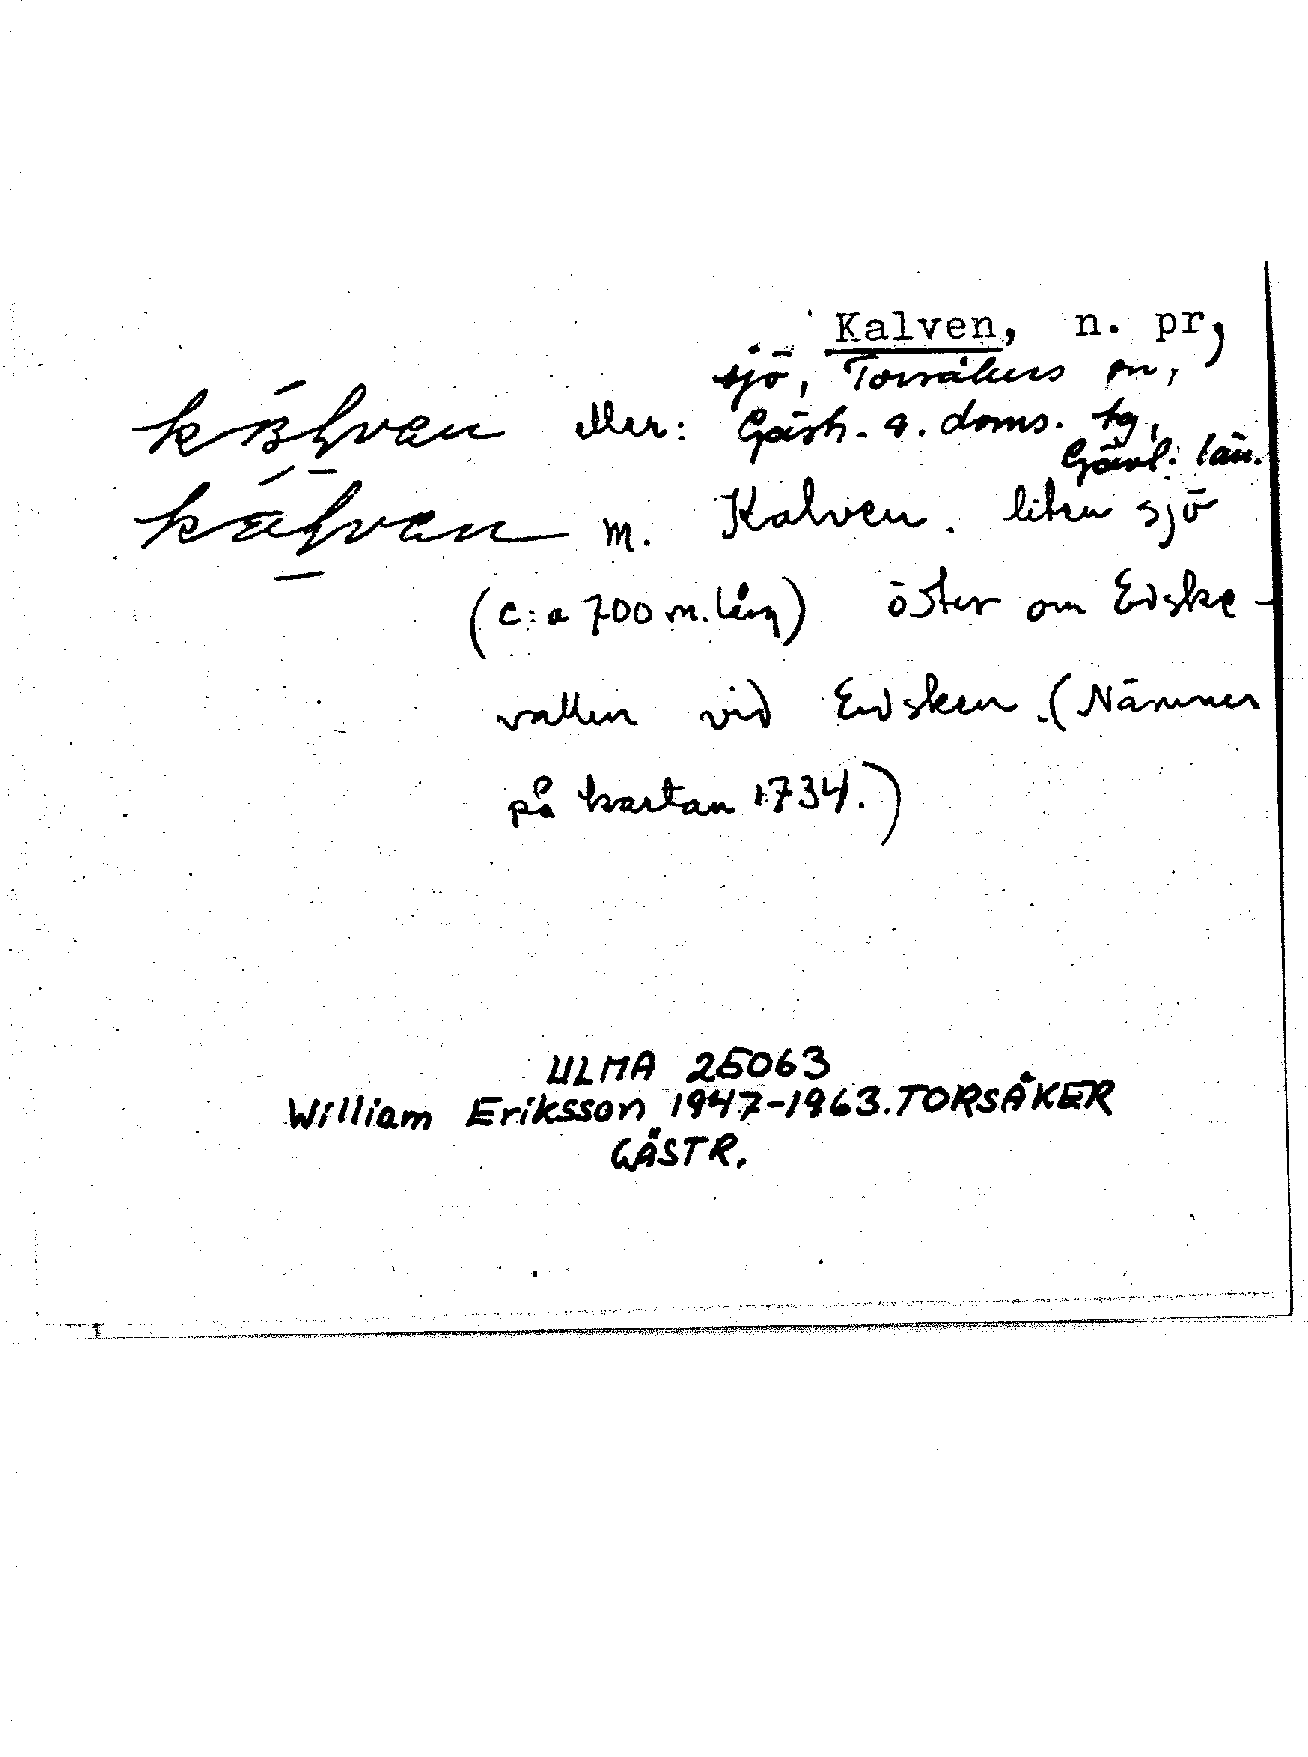 Kalven, n. pr,
sjö, Torsåkers sn,
eller: Gästr. ö. doms. tg,
Gävl. län.
m. Kalven. liten sjö
(c:a 700 m. lång) öster om Edske-
vallen vid Edsken. (Nämner
på kartan 1734.)
ULMA 25063
William Eriksson 1947-1963. TORSÅKER
GÄSTR.